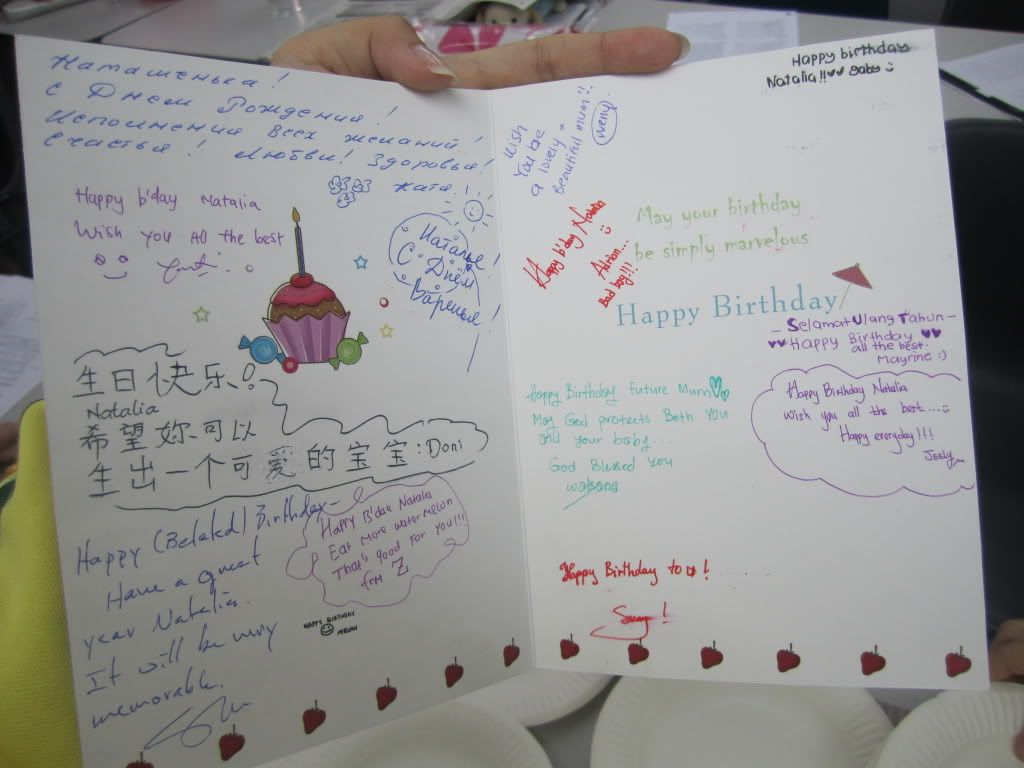 Наташенька!
С Днем Рождения!
Исполнения всех желаний!
Счастья! Любви! Здоровья!
Катя!
Happy b'day Natalia
Wish you All the best
Наталье!
С Днём
Варенья!
生日快乐!
Natalia
希望妳可以
生出一个可爱的宝宝:Doni
Happy (Belated) Birthday-
Have a great
year Natalia.
It will be very
memorable.
Happy B'dae Natalia
Eat More water Melon
That's good For You!!!
from Z
HAPPY BIRTHDAY
Happy birthday
Natalia!! ♥♥ Gaby
Wish
You be
a lovely &
Beautiful mum!!
Wendy
Happy b'day Natalia
Adrian...
Bad boy!!!
May your birthday
be simply marvelous
Happy Birthday
- Selamat Ulang Tahun -
♥♥ Happy Birthday ♥♥
all the best.
Mayrine :)
Happy Birthday Future Mum
May God protects Both You
and your baby...
God Blessed You
Happy Birthday Natalia
Wish you all the best....
Happy everyday!!!
Happy Birthday to u!.......